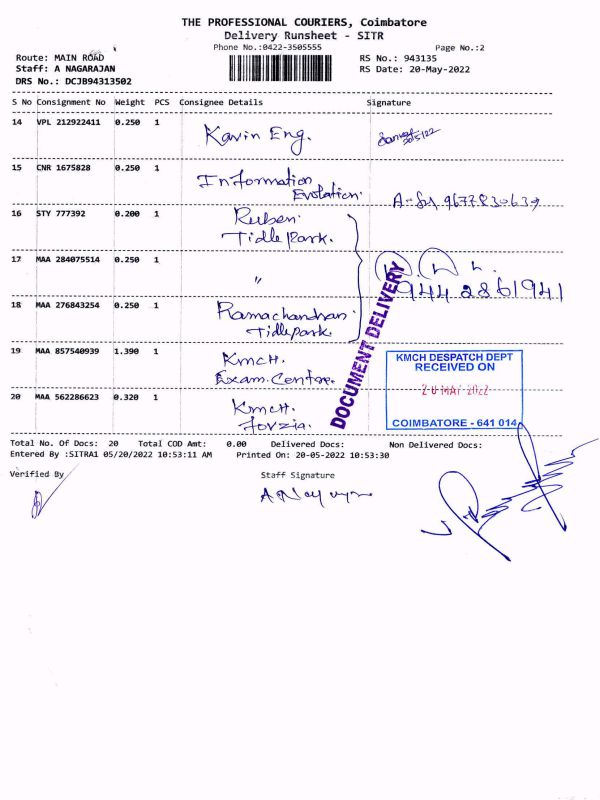 THE PROFESSIONAL COURIERS, Coimbatore
Delivery Runsheet - SITR
Phone No.:0422-3505555
Page No.:2
Route: MAIN ROAD
RS No.: 943135
Staff: A NAGARAJAN
RS Date: 20-May-2022
DRS No.: DCJB94313502
S No Consignment No Weight PCS Consignee Details Signature
14 VPL 212922411 0.250 1 Kavin Eng.
15 CNR 1675828 0.250 1 Information
Evolation. 9677830639
16 STY 777392 0.200 1 Ruben.
Tidle park.
17 MAA 284075514 0.250 1 "
944 2861941
18 MAA 276843254 0.250 1 Ramachandran.
Tidlepark.
DOCUMENT DELIVERY
19 MAA 857540939 1.390 1 KmcH.
Exam. Centre.
20 MAA 562286623 0.320 1 KmcH.
Fovzia.
KMCH DESPATCH DEPT
RECEIVED ON
20 MAY 2022
COIMBATORE - 641 014
Total No. Of Docs: 20 Total COD Amt: 0.00 Delivered Docs: Non Delivered Docs:
Entered By :SITRA1 05/20/2022 10:53:11 AM Printed On: 20-05-2022 10:53:30
Verified By Staff Signature